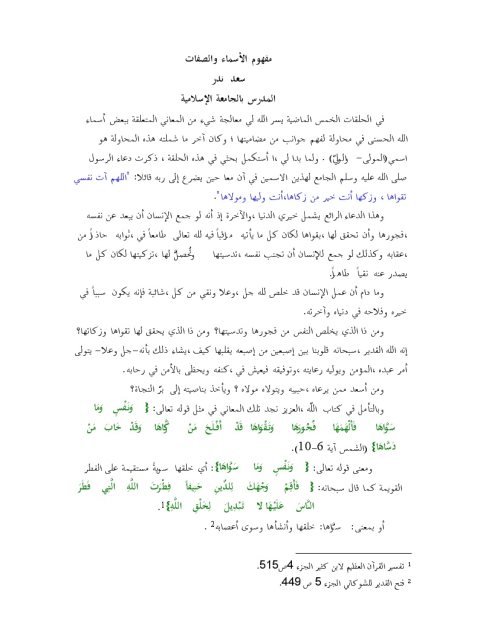 مفهوم الأسماء والصفات
سعد ندر
المدرس بالجامعة الإسلامية
في الحلقات الخمس الماضية يسر الله لي معالجة شيء من المعاني المتعلقة ببعض أسماء
الله الحسنى في محاولة لفهم جوانب من مضامينها ؛ وكان آخر ما شملته هذه المحاولة هو
اسمي(المولى- ولما بدا لي ،أ أستكمل بحثي في هذه الحلقة ، ذكرت دعاء الرسول
صلى الله عليه وسلم الجامع لهذين الاسمين في آن معا حين يضرع إلى ربه قائلا: "اللهم آت نفسي
تقواها ، وزكها أنت خير من زكاها،أنت وليها ومولاها".
وهذا الدعاء الرائع يشمل خيري الدنيا ،والآخرة إذ أنه لو جمع الإنسان أن يبعد عن نفسه
،فجورها وأن تحقق لها ،بقواها لكان كل ما يأتيه فيه لله تعالى طامعاً في ،ثوابه
،عقابه وكذلك لو جمع للإنسان أن تجنب نفسه ،تدسيتها لها ،تزكيتها لكان كل ما
يصدر عنه نقياً
وما دام أن عمل الإنسان قد خلص لله جل ،وعلا ونقي من كل ،شائبة فإنه يكون سبباً في
خيره وفلاحه في دنياه وآخرته.
ومن ذا الذي يخلص النفس من فجورها وتدسيتها؟ ومن ذا الذي يحقق لها تقواها وزكاتها؟
إنه الله القدير ،سبحانه قلوبنا بين إصبعين من إصبعه يقلبها كيف ،يشاء ذلك بأنه-جل وعلا- يتولى
أمر عبده ،المؤمن ويوليه رعايته ،وتوفيقه فيعيش في ،كنفه ويحظى بالأمن في رحابه.
ومن أسعد ممن يرعاه ،حبيبه ويتولاه مولاه ؟ ويأخذ بناصيته إلى برّ النجاة؟
وبالتأمل في كتاب اللّه ،العزيز نجد تلك المعاني في مثل قوله تعالى: { وَنَفْسٍ وَمَا
سَوَّاهَا فَأَلْهَمَهَا فُجُورَهَا وَتَقْوَاهَا قَدْ أَفْلَحَ مَنْ كَّاهَا وَقَدْ خَابَ مَنْ
دَسَّاهَا} (الشمس آية 6-10).
ومعنى قوله تعالى: { وَنَفْسٍ وَمَا سَوَّاهَا}: أي خلقها سويةً مستقيمة على الفطر
القويمة كما قال سبحانه: { فَأَقِمْ وَجْهَكَ لِلدِّينِ حَنِيفاً فِطْرَتَ اللَّهِ الَّتِي فَطَرَ
النَّاسَ عَلَيْهَا لا تَبْدِيلَ لِخَلْقِ اللَّهِ}1.
أو بمعنى: سوَّاها: خلقها وأنشأها وسوى أعصابه2.
1 تفسير القرآن العظيم لابن كثير الجزء 4ص515.
2 فتح القدير للشوكاني الجزء 5 ص 449.